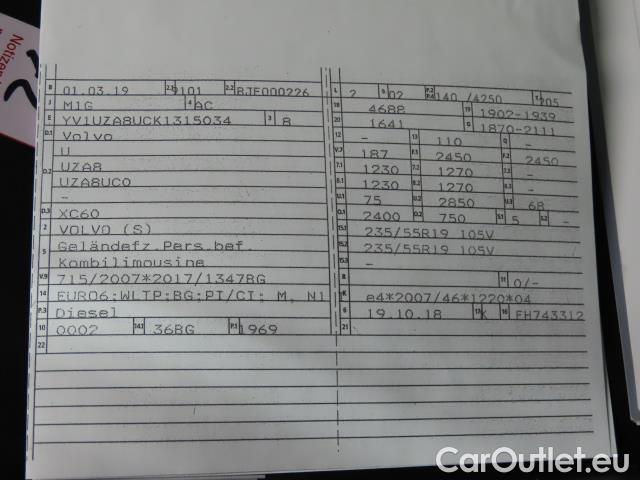 Notizen
B 01.03.19 2.1 9101 2.2 BJF000226
J M1G 4 AC
E YV1UZA8UCK1315034 3 8
D.1 Volvo
U
D.2 UZA8
UZA8UC0
-
D.3 XC60
2 VOLVO (S)
5 Geländefz.Pers.bef.
Kombilimousine
V.9 715/2007*2017/1347BG
14 EURO6;WLTP;BG;PI/CI; M, N1
P.3 Diesel
10 0002 14.1 36BG P.1 1969
22
L 2 9 02 P.2 P.4 140 /4250 T 205
18 4688 19 1902-1939
20 1641 G 1870-2111
12 - 13 110 Q -
V.7 187 F.1 2450 F.2 2450
7.1 1230 7.2 1270 7.3 -
8.1 1230 8.2 1270 8.3 -
U.1 75 U.2 2850 U.3 68
O.1 2400 O.2 750 S.1 5 S.2 -
15.1 235/55R19 105V
15.2 235/55R19 105V
15.3 -
R 11 0/-
K e4*2007/46*1220*04
6 19.10.18 17 K 16 FH743312
21
CarOutlet.eu